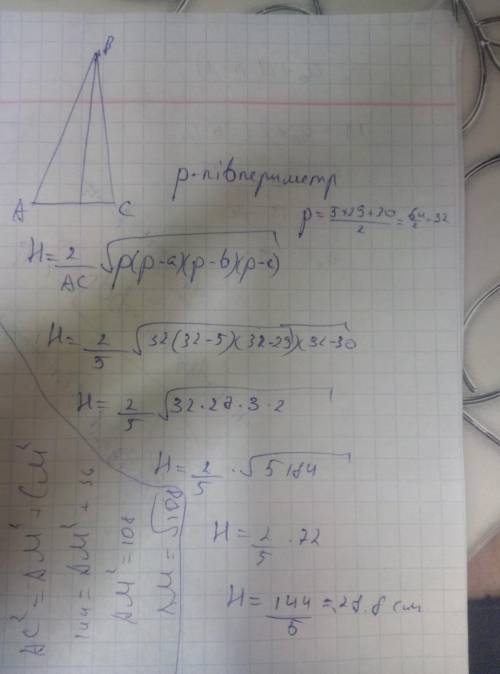 B
A
C
p-півпериметр
p = (5+29+30)/2 = 64/2 = 32
H = 2/AC √p(p-a)(p-b)(p-c)
H = 2/5 √32(32-5)(32-29)(32-30
H = 2/5 √32·27·3·2
H = 2/5 · √5184
H = 2/5 · 72
H = 144/5 = 28.8 см
AC² = AM² + CM²
144 = AM² + 36
AM² = 108
AM = √108